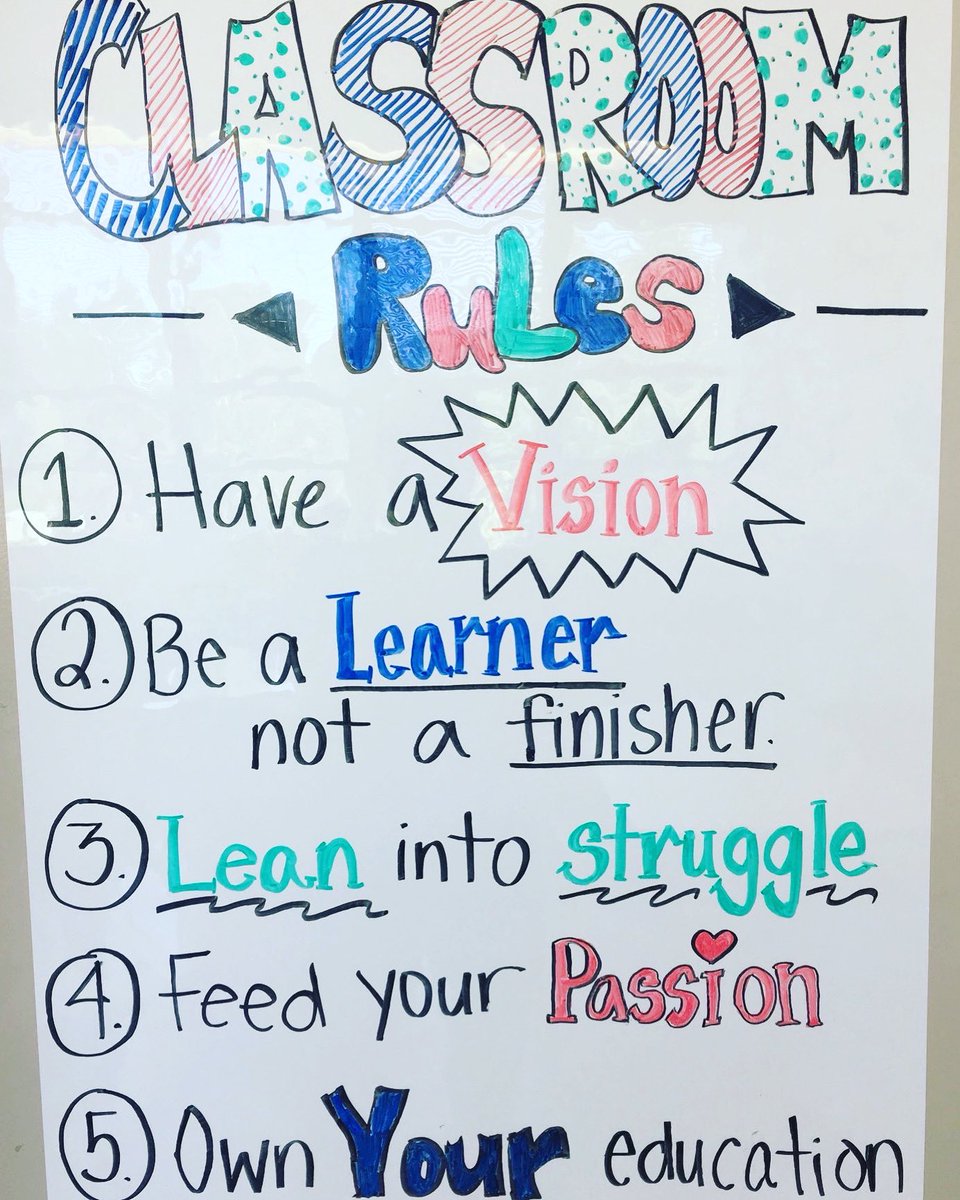 CLASSROOM
RuLes
1. Have a Vision
2. Be a Learner
not a finisher.
3. Lean into struggle
4. Feed your Passion
5. Own Your education